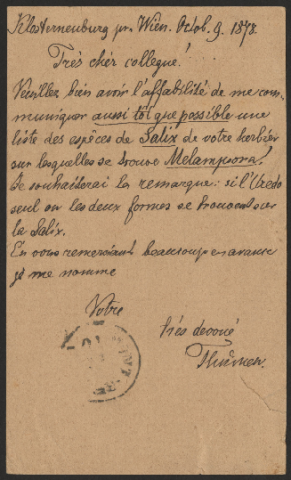 Klosterneuburg pr. Wien. Octob. 9. 1878.
Très chér collegue!
Veuillez bien avoir l'affabilité de me com-
muniquer aussi tôt que possible une
liste des espèces de Salix de votre herbier
sur lesquelles se trouve Melampsora!
Je souhaiterai la remarque: si l'Uredo
seul ou les deux formes se trouvent sur
la Salix.
En vous remerciant beaucoup en avance
je me nomme
Votre
très devoué
Thümen.